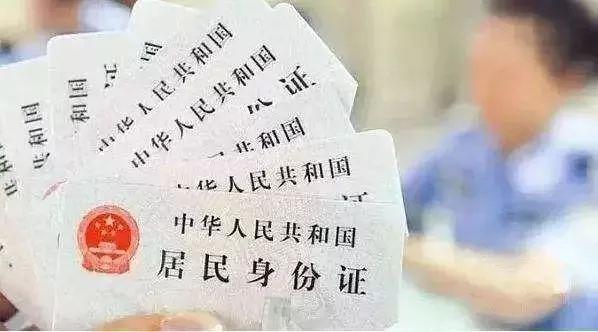 共和国
共和国
中华人民共和国
证
中华人民共和国
中华人民共和国
中华人民共和国
居民身份证